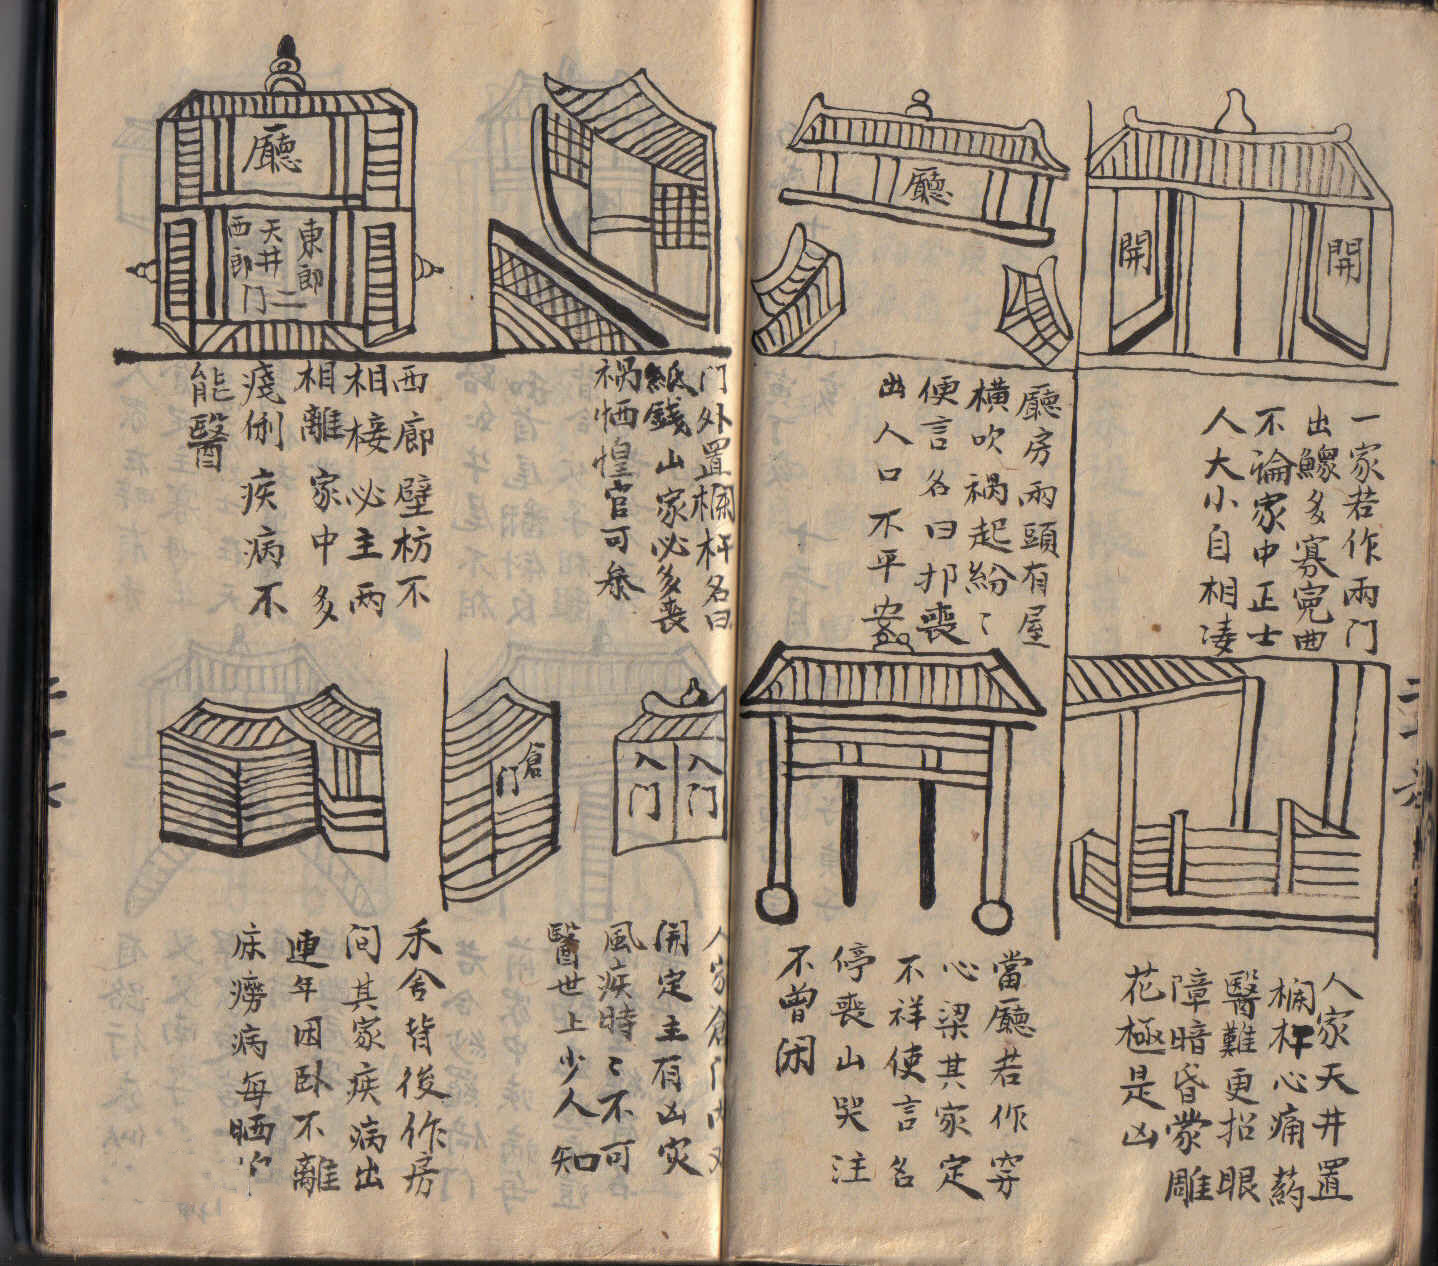 開
開
一家若作兩门
出鰥多寡寃曲
不論家中正士
人大小自相凑
廳
廳房兩頭有屋
横吹禍起紛〻
便言名曰邦喪
出人口不平安
人家天井置
欄杆心痛药
醫難更招眼
障暗昏蒙雕
花極是凶
當廳若作穿
心梁其家定
不祥使言名
停喪山哭注
不曾闲
门外置欄杆名曰
紙錢山家必多喪
禍恓惶官可叅
廳
東郎
天井二
西郎门
西廊壁枋不
相接必主两
相離家中多
殘俐疾病不
能醫
入门
入门
倉门
人家倉门
開定主有凶灾
風疾時〻不可
醫世上少人知
禾舍背後作房
间其家疾病出
連年困卧不離
床痨病每晒